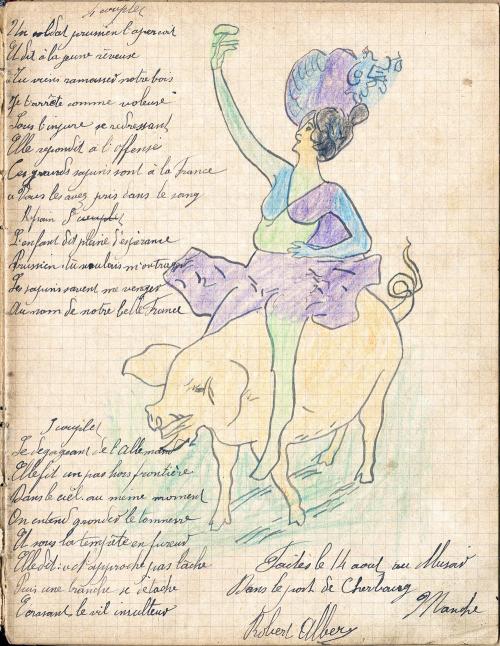 4 couplet
Un soldat prussien l'apercoit
Et dit à la jeune rêveuse
Tu viens ramasser notre bois
Je t'arrête comme voleuse
Sous l'injure se redressant
Elle repondit à l'offense
Ces grands sapins sont à la France
Vous les avez pris dans le sang
Refrain
L'enfant dit pleine d'espérance
Prussien tu voulais m'outrager
Les sapins savent me venger
Au nom de notre belle France
5 couplet
Se degageant de l'allemand
Elle fit un pas hors frontière
Dans le ciel au meme moment
On entend gronder le tonnerre
Et sous la tempête en fureur
Elle dit n'approche pas lâche
Puis une branche se détache
Ecrasant le vil insulteur
Faites le 14 aout au
Dans le port de Cherbourg
Manche
Robert Albery